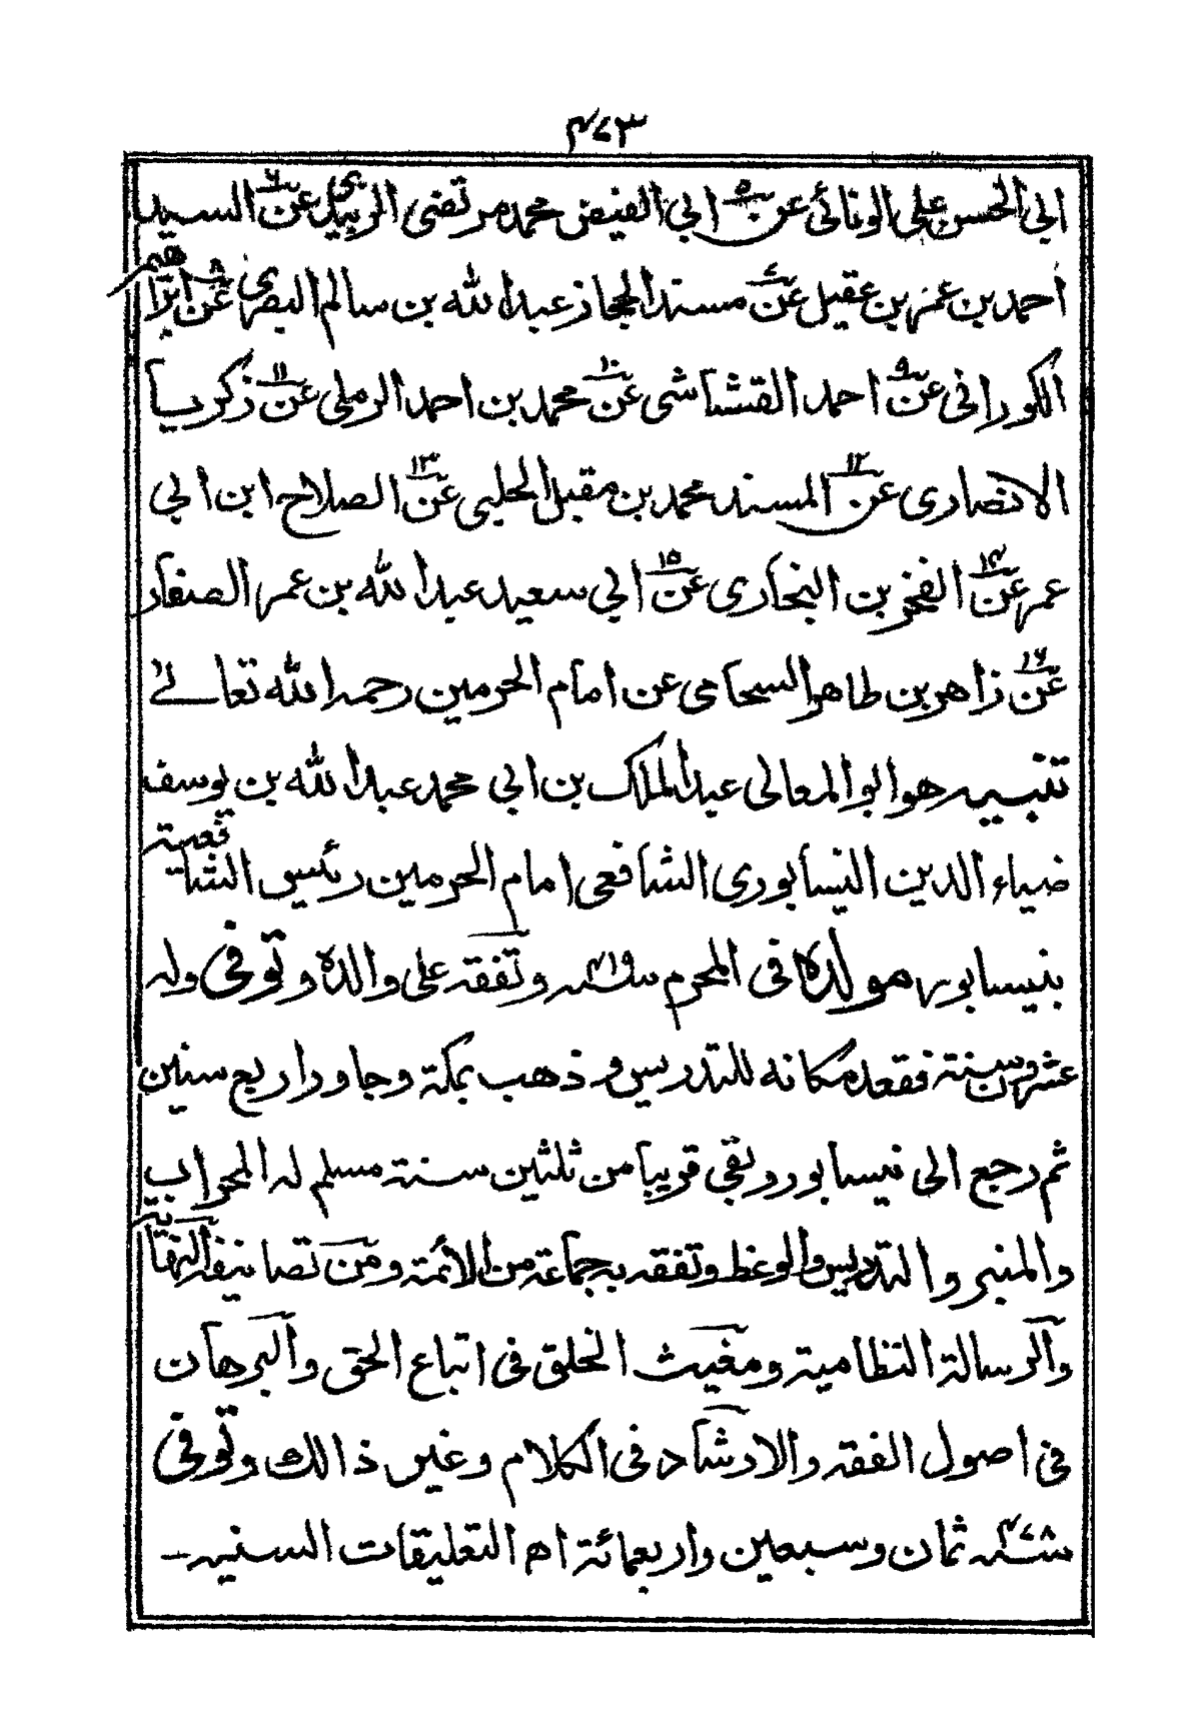 ۴۷۳
ابي الحسن علي الونائى عن ۵ ابي الفيض محمد مرتضى الزبيدي عن ۶ السيد
احمد بن عمر بن عقيل عن ۷ مسند الحجاز عبد الله بن سالم البصري عن ۸ ابراهيم
الكوراني عن ۹ احمد القشاشى عن ۱۰ محمد بن احمد الرملى عن ۱۱ زكريا
الانصارى عن ۱۲ المسند محمد بن مقبل الحلبى عن ۱۳ الصلاح ابن ابي
عمر عن ۱۴ الفخر بن البخارى عن ۱۵ ابي سعيد عبد الله بن عمر الصفار
عن ۱۶ زاهر بن طاهر السحامى عن امام الحرمين رحمه الله تعالىٰ
تنبيه هو ابو المعالى عبد الملك بن ابي محمد عبد الله بن يوسف
ضياء الدين النيسابورى الشافعى امام الحرمين رئيس الشافعية
بنيسابور مولده فى المحرم سنه ۴۱۹ وتفقه على والده وتوفى وله
عشرون سنة فقعد مكانه للتدريس و ذهب بمكة وجاور اربع سنين
ثم رجع الى نيسابور وبقي قريبا من ثلثين سنة مسلم له المحراب
والمنبر والتدريس والوعظ وتفقه به جماعة من الائمة ومن تصانيفه النهاية
والرسالة النظامية ومغيث الخلق فى اتباع الحق والبرهان
فى اصول الفقه والارشاد فى الكلام وغير ذالك وتوفى
سنه ۴۷۸ ثمان وسبعين واربعمائة اه التعليقات السنيه ـ